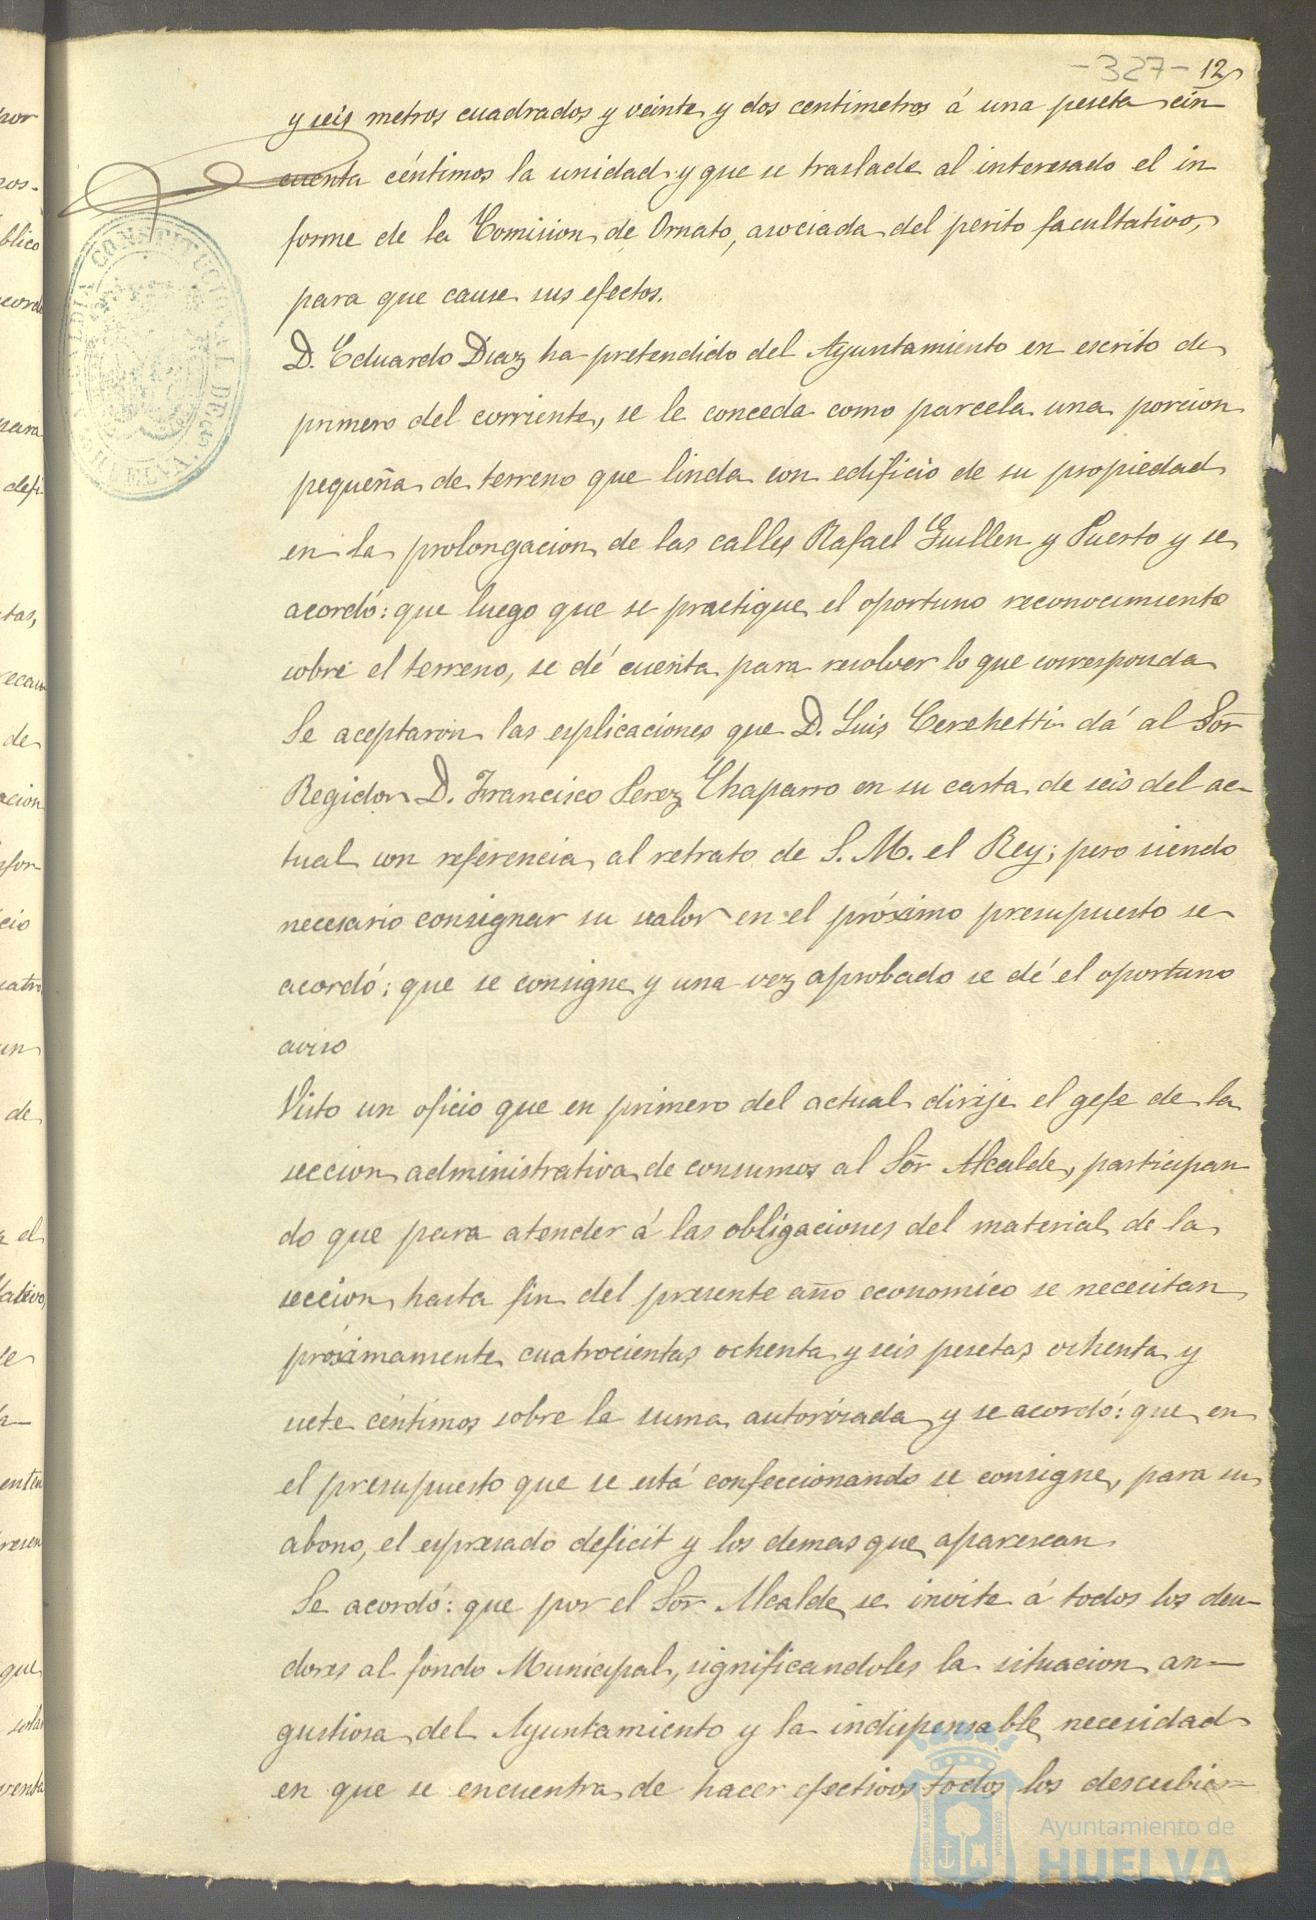 -327- 12
y seis metros cuadrados y veinte y dos centimetros á una peseta cin
cuenta céntimos la unidad y que se traslade al interesado el in
forme de la Comision de Ornato, asociada del perito facultativo,
para que cause sus efectos.
D. Eduardo Diaz ha pretendido del Ayuntamiento en escrito de
primero del corriente, se le conceda como parcela una porcion
pequeña de terreno que linda con edificio de su propiedad
en la prolongacion de las calles Rafael Guillen y Puerto y se
acordó: que luego que se practique el oportuno reconocimiento
sobre el terreno, se dé cuenta para resolver lo que corresponda
Se aceptaron las esplicaciones que D. Luis Cerehetti dá al Sor
Regidor D. Francisco Perez Chaparro en su carta de seis del ac-
tual con referencia al retrato de S. M. el Rey; pero siendo
necesario consignar su valor en el próximo presupuesto se
acordó; que se consigne y una vez aprobado se dé el oportuno
aviso
Visto un oficio que en primero del actual dirije el gefe de la
seccion administrativa de consumos al Sor Alcalde, participan
do que para atender á las obligaciones del material de la
seccion hasta fin del presente año economico se necesitan
próximamente cuatrocientas ochenta y seis pesetas ochenta y
siete céntimos sobre la suma autorizada y se acordó: que en
el presupuesto que se está confeccionando se consigne, para su
abono, el espresado deficit y los demas que aparescan
Se acordó: que por el Sor Alcalde se invite á todos los deu-
dores al fondo Municipal, significandoles la situacion an-
gustiosa del Ayuntamiento y la indispensable necesidad
en que se encuentra de hacer efectivos todos los descubier=
ALCALDIA CONSTITUCIONAL DE HUELVA
Ayuntamiento de
HUELVA